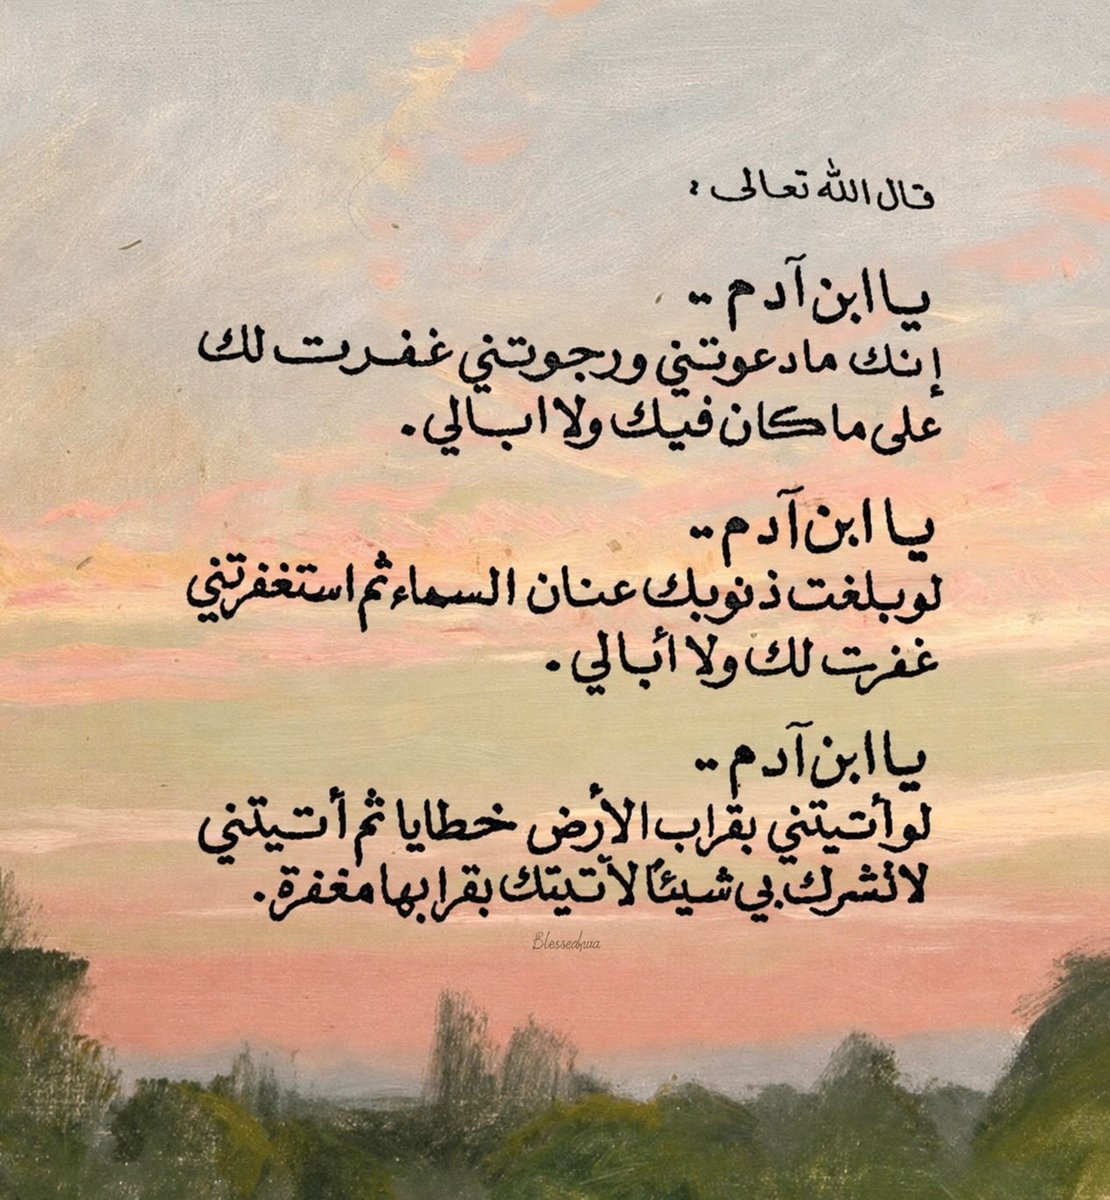 قال الله تعالى :
يا ابن آدم ..
إنك ما دعوتني ورجوتني غفرت لك
على ما كان فيك ولا ابالي .
يا ابن آدم ..
لو بلغت ذنوبك عنان السماء ثم استغفرتني
غفرت لك ولا أبالي .
يا ابن آدم ..
لو أتيتني بقراب الأرض خطايا ثم أتيتني
لا تشرك بي شيئاً لأتيتك بقرابها مغفرة .